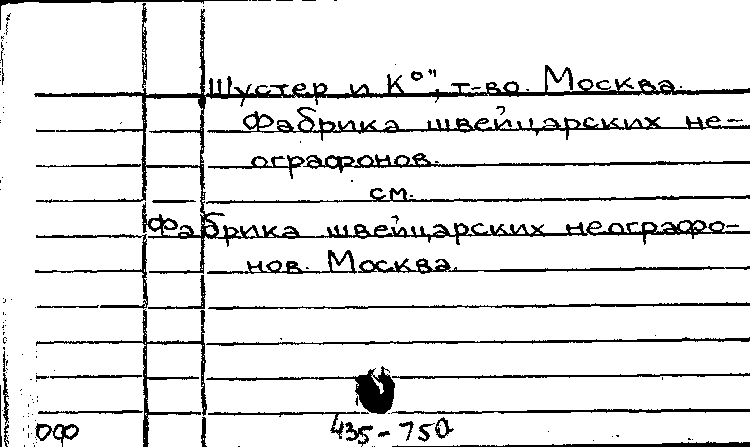 Шустер и К°", т-во. Москва.
Фабрика швейцарских не-
ографонов.
см.
Фабрика швейцарских неографо-
нов. Москва.
ОФ
435-750